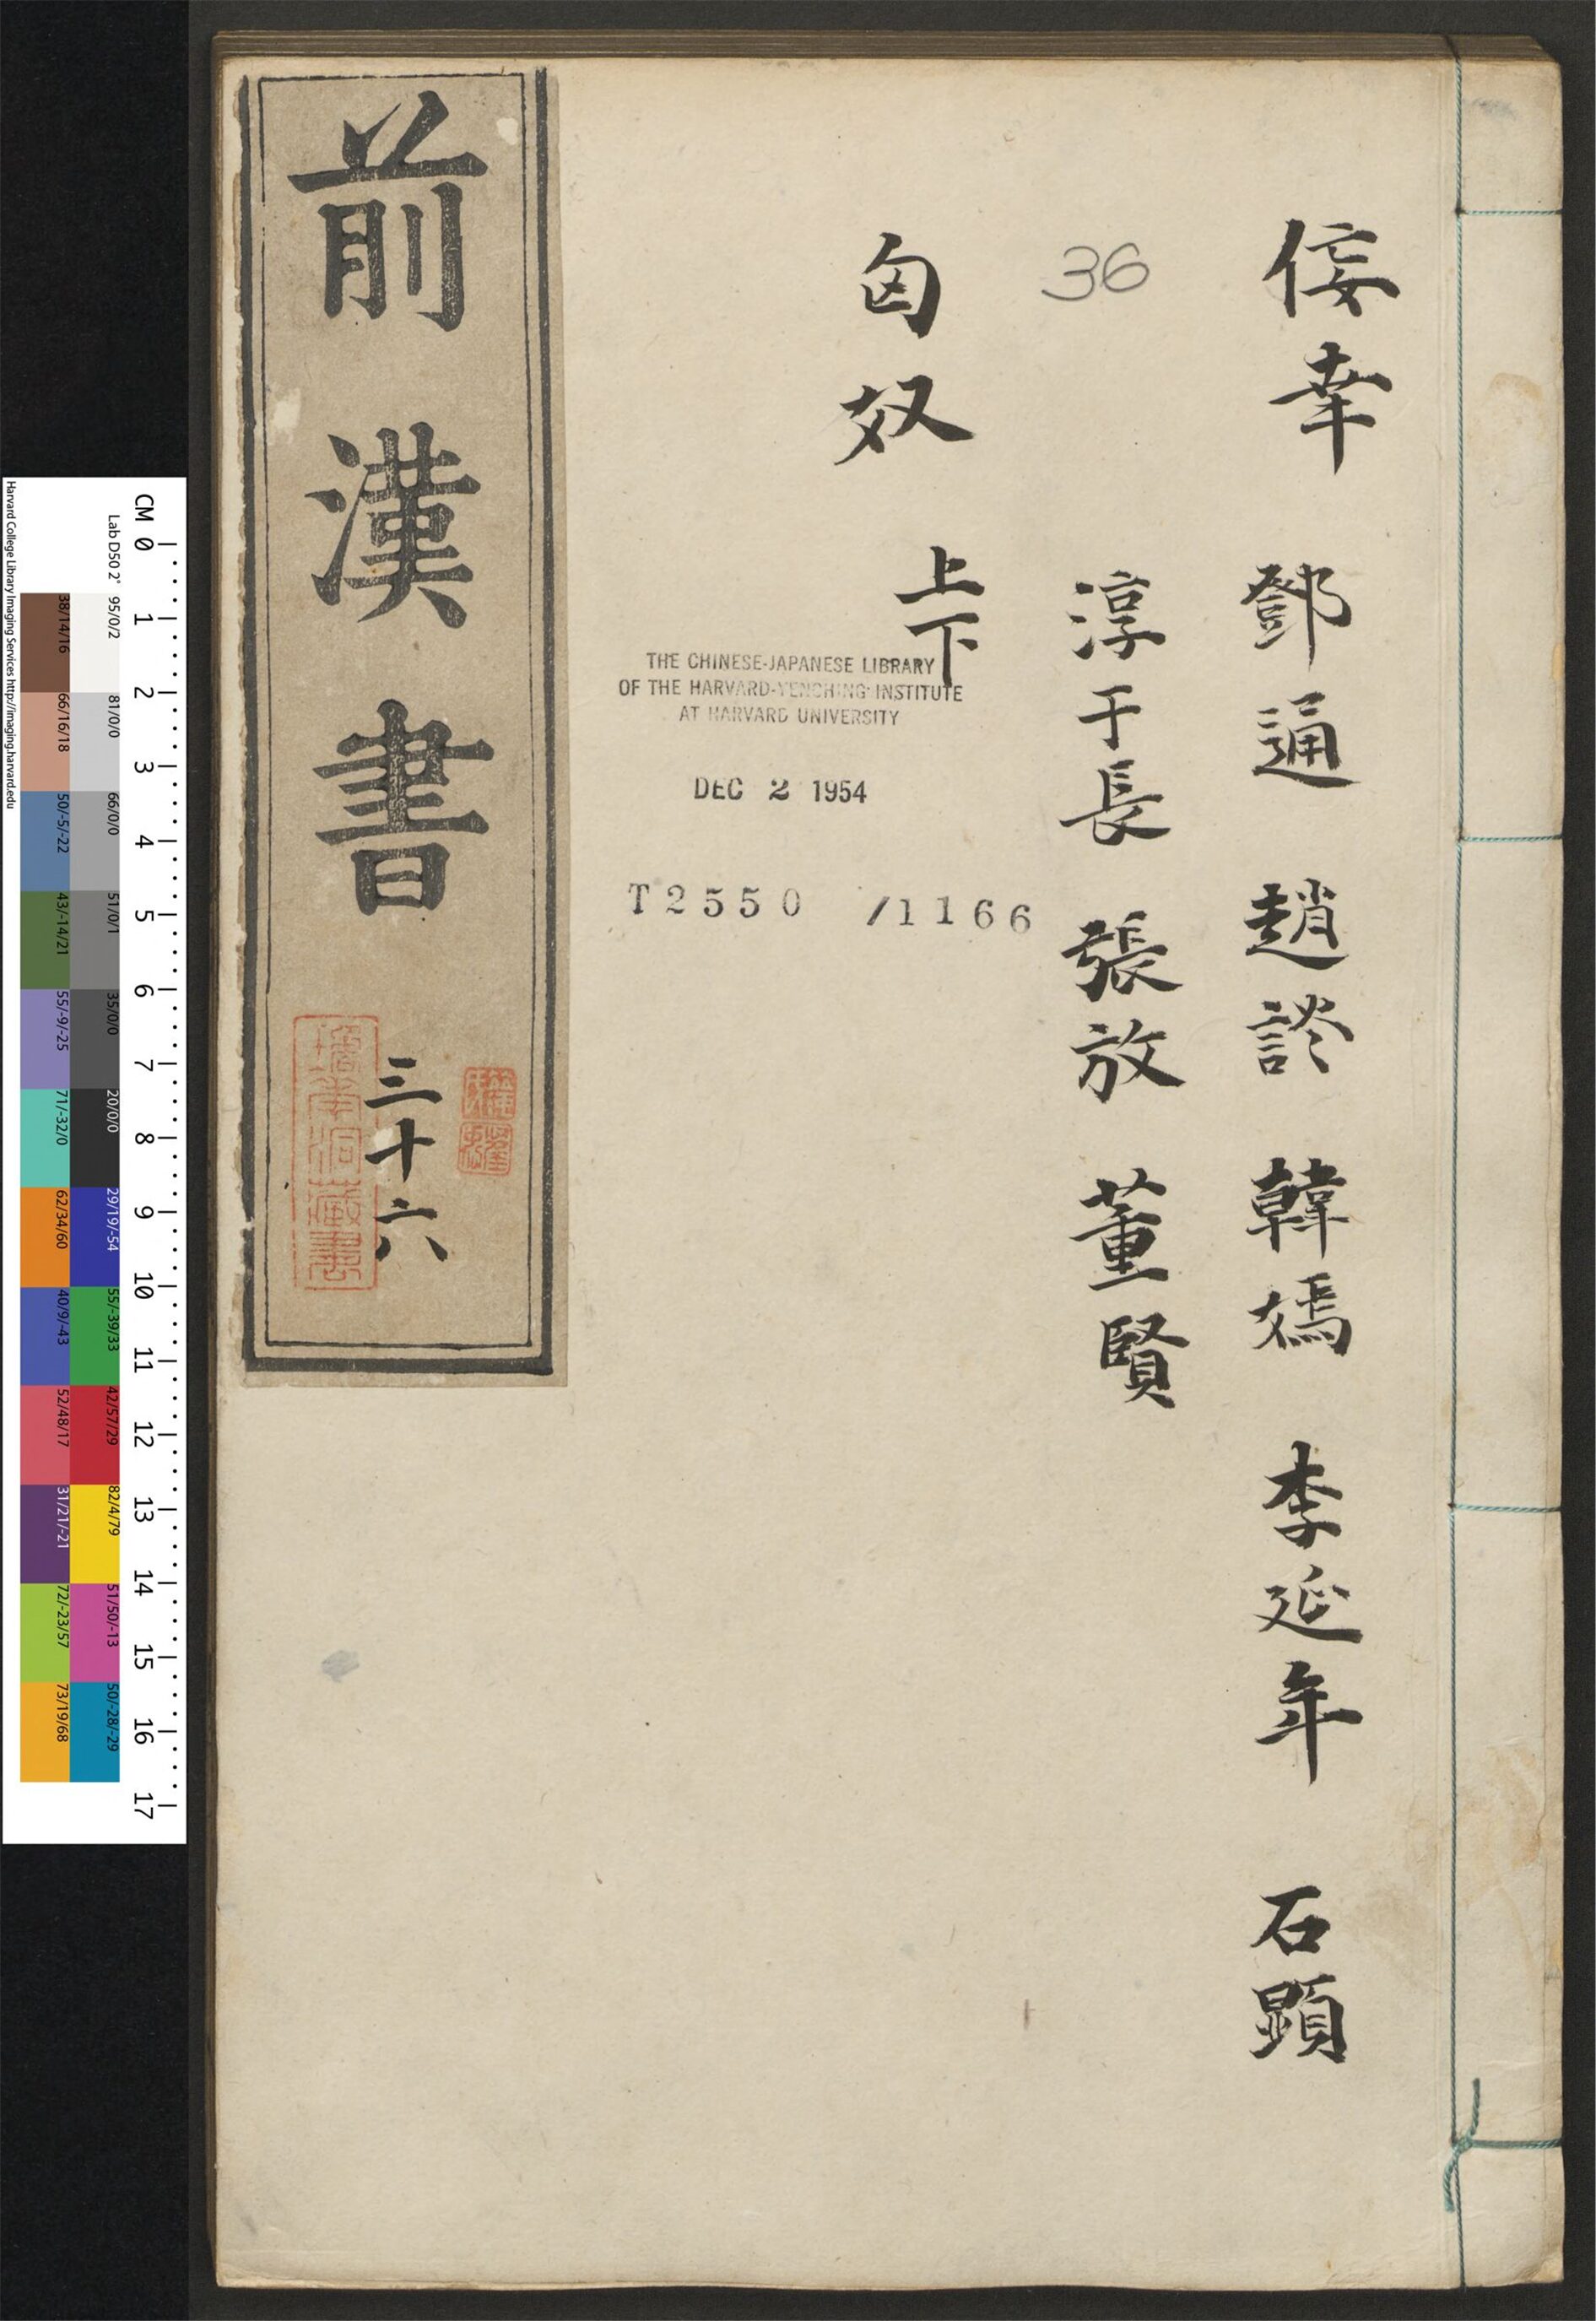 佞幸 鄧通 趙談 韓嫣 李延年 石顕
淳于長 張放 董賢
36
匈奴 上下
THE CHINESE-JAPANESE LIBRARY
OF THE HARVARD-YENCHING INSTITUTE
AT HARVARD UNIVERSITY
DEC 2 1954
T2550 /1166
前漢書
三十六
CM 0 1 2 3 4 5 6 7 8 9 10 11 12 13 14 15 16 17
Lab D50 2° 95/0/2 81/0/0 66/0/0 51/0/1 35/0/0 20/0/0 29/19/-54 55/-39/33 42/57/29 82/4/79 51/50/-13 50/-28/-29
38/14/16 66/16/18 50/-5/-22 43/-14/21 55/-9/-25 71/-32/0 62/34/60 40/9/-43 52/48/17 31/21/-21 72/-23/57 73/19/68
Harvard College Library Imaging Services http://imaging.harvard.edu